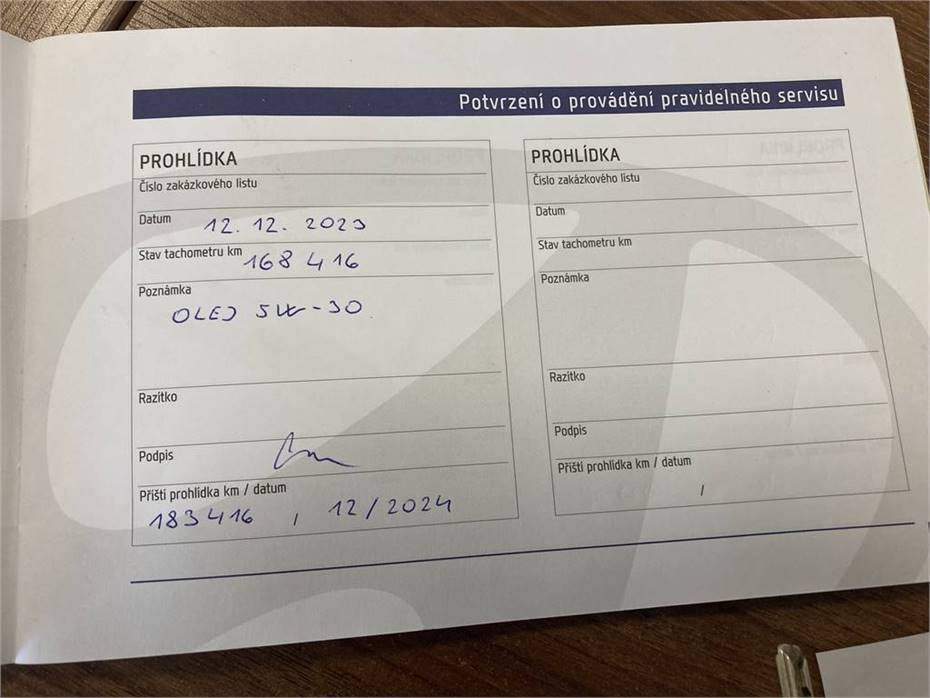 Potvrzení o provádění pravidelného servisu
PROHLÍDKA
Číslo zakázkového listu
Datum 12. 12. 2023
Stav tachometru km 168 416
Poznámka
OLEJ 5W-30
Razítko
Podpis
Příští prohlídka km / datum
183416 / 12/2024
PROHLÍDKA
Číslo zakázkového listu
Datum
Stav tachometru km
Poznámka
Razítko
Podpis
Příští prohlídka km / datum
/